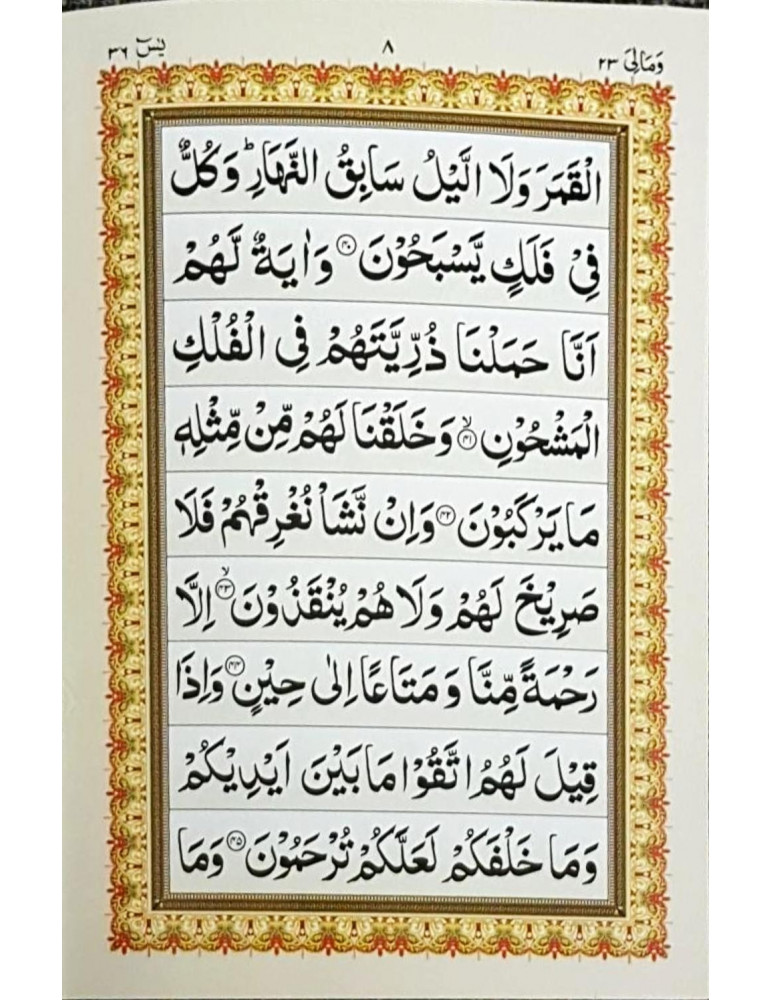 وَمَالِیَ ۲۳ ۸ یٰسٓ ۳۶
الْقَمَرَ وَلَا الَّیْلُ سَابِقُ النَّهَارِ ؕ وَكُلٌّ
فِیْ فَلَكٍ یَّسْبَحُوْنَ ﴿۴۰﴾ وَاٰیَةٌ لَّهُمْ
اَنَّا حَمَلْنَا ذُرِّیَّتَهُمْ فِی الْفُلْكِ
الْمَشْحُوْنِ ﴿ۙ۴۱﴾ وَخَلَقْنَا لَهُمْ مِّنْ مِّثْلِهٖ
مَا یَرْكَبُوْنَ ﴿۴۲﴾ وَاِنْ نَّشَاْ نُغْرِقْهُمْ فَلَا
صَرِیْخَ لَهُمْ وَلَا هُمْ یُنْقَذُوْنَ ﴿ۙ۴۳﴾ اِلَّا
رَحْمَةً مِّنَّا وَمَتَاعًا اِلٰی حِیْنٍ ﴿۴۴﴾ وَاِذَا
قِیْلَ لَهُمُ اتَّقُوْا مَا بَیْنَ اَیْدِیْكُمْ
وَمَا خَلْفَكُمْ لَعَلَّكُمْ تُرْحَمُوْنَ ﴿۴۵﴾ وَمَا